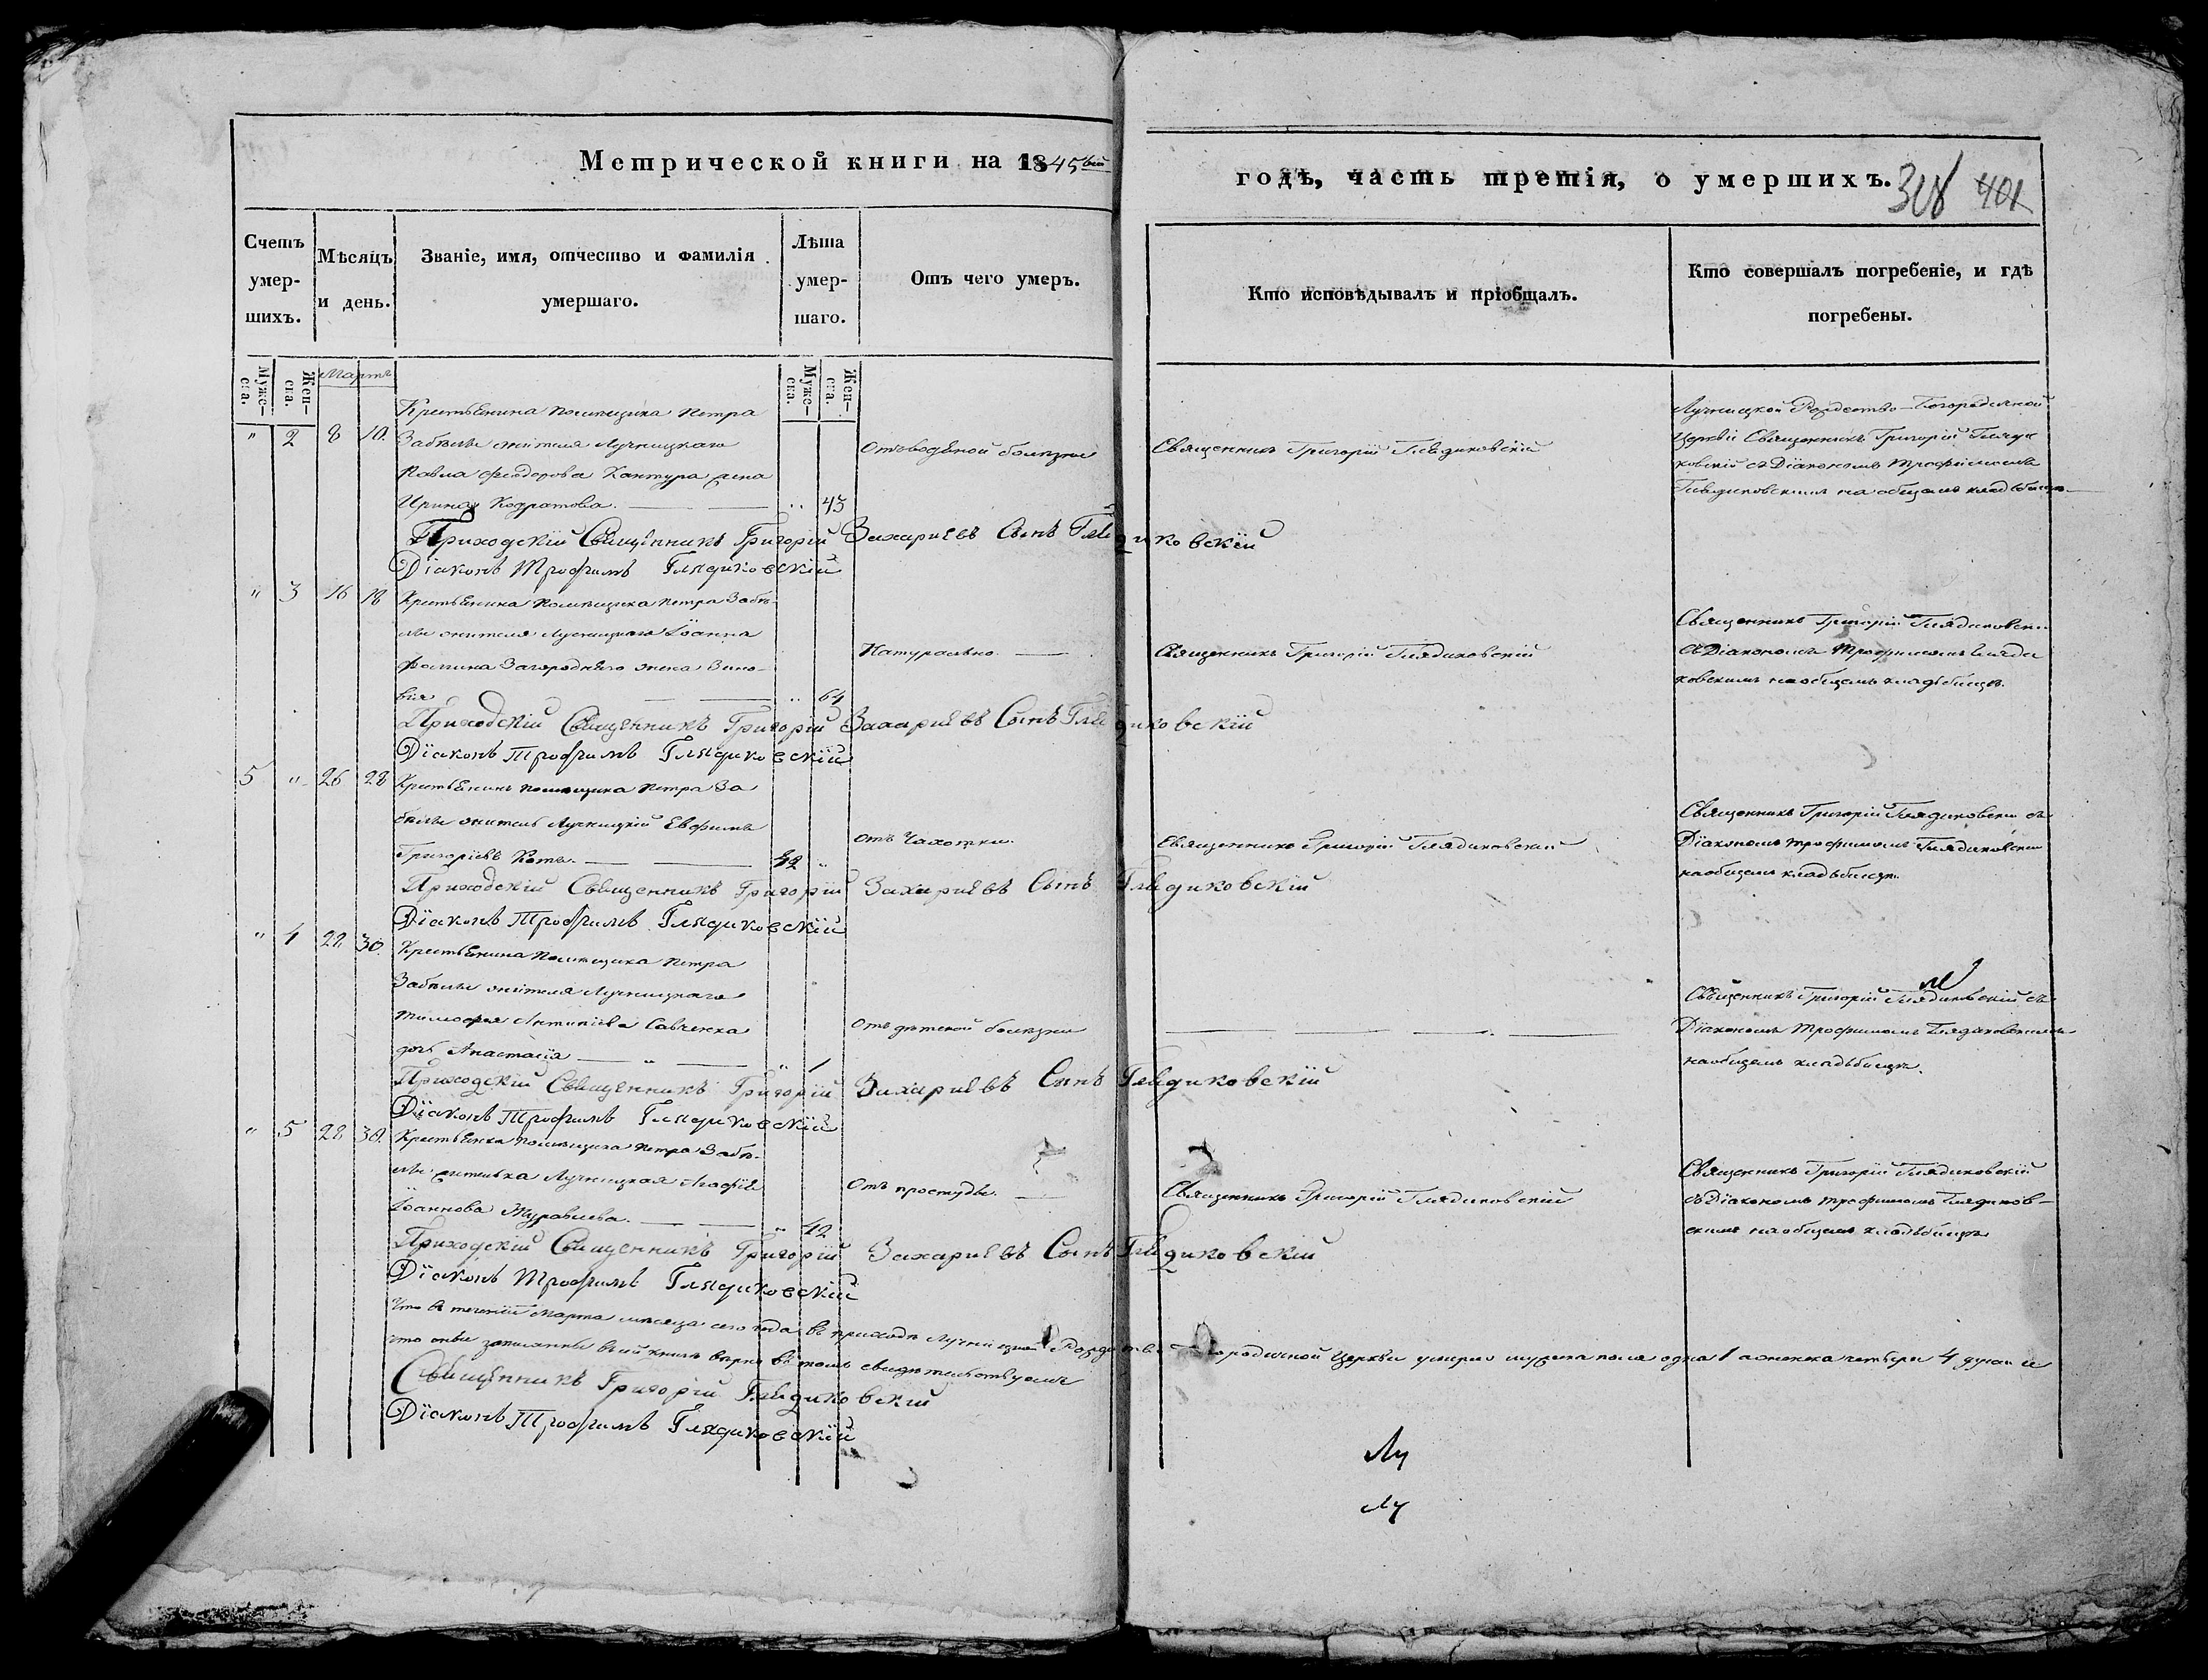 Метрической книги на 1845вый
годъ, часть третія, о умершихъ.
318 401
Счетъ умер-шихъ.
Мѣсяцъ и день.
Званіе, имя, отчество и фамилія умершаго.
Лѣта умер-шаго.
Отъ чего умеръ.
Кто исповѣдывалъ и пріобщалъ.
Кто совершалъ погребеніе, и гдѣ погребены.
Мужс-ка.
Жен-ска.
Мартъ
Мужс-ка.
Жен-ска.
" 2 8 10.
Крестьянина помѣщика Петра
Забѣлы жителя Лучницкаго
Павла Феодорова Кантура жена
Ирина Кодратова. 43
Отъ водяной болѣзни
Священникъ Григорій Глядиковскій
Лучницкой Рождество-Богородичной
Церкви Священникъ Григорій Гляди
ковскій съ Діакономъ Трофимомъ
Глядиковскимъ на общемъ кладбищѣ
Приходскій Священникъ Григорій Захаріевъ Сынъ Глядиковскій
Діаконъ Трофимъ Глядиковскій
" 3 16 18
Крестьянина помѣщика Петра Забѣ-
лы жителя Лучницкаго Іоанна
Фомина Загороднего жена Зино-
вія 64
Натурально.
Священникъ Григорій Глядиковскій
Священникъ Григорій Глядиковскій
съ Діакономъ Трофимомъ Гляди
ковскимъ на общемъ кладбищѣ.
Приходскій Священникъ Григорій Захаріевъ Сынъ Глядиковскій
Діаконъ Трофимъ Глядиковскій
5 " 26 28
Крестьянинъ помѣщика Петра За
бѣлы житель Лучницкій Евфимъ
Григоріевъ Котъ. 42 "
отъ Чахотки.
Священникъ Григорій Глядиковскій
Священникъ Григорій Глядиковскій съ
Діакономъ Трофимомъ Глядиковским
на общемъ кладбищѣ.
Приходскій Священникъ Григорій Захаріевъ Сынъ Глядиковскій
Діаконъ Трофимъ Глядиковскій
" 4 28 30.
Крестьянина помѣщика Петра
Забѣлы жителя Лучницкаго
Тимофея Антипіева Савченка
дочь Анастасія " 1
Отъ дѣтской болѣзни
Священникъ Григорій Глядиковскій съ
Діакономъ Трофимомъ Глядиковскимъ
на общемъ кладбищѣ.
Приходскій Священникъ Григорій Захаріевъ Сынъ Глядиковскій
Діаконъ Трофимъ Глядиковскій
" 5 28 30.
Крестьянка помѣщика Петра Забѣ-
лы жителька Лучницкая Агафія
Іоаннова Журавлева. " 42
Отъ простуды.
Священникъ Григорій Глядиковскій
Священникъ Григорій Глядиковскій
съ Діакономъ Трофимомъ Глядиков-
скимъ на общемъ кладбищѣ
Приходскій Священникъ Григорій Захаріевъ Сынъ Глядиковскій
Діаконъ Трофимъ Глядиковскій
Что въ теченіи Марта мѣсяца сего года въ приходѣ Лучницкой Рождество-Богородичной Церкви умерло мужеска пола одна 1 а женска четыри 4 души и
что оныи записанны в сей книгѣ вѣрно въ томъ свидѣтельствуемъ
Священникъ Григорій Глядиковскій
Діаконъ Трофимъ Глядиковскій
Лу
Лу